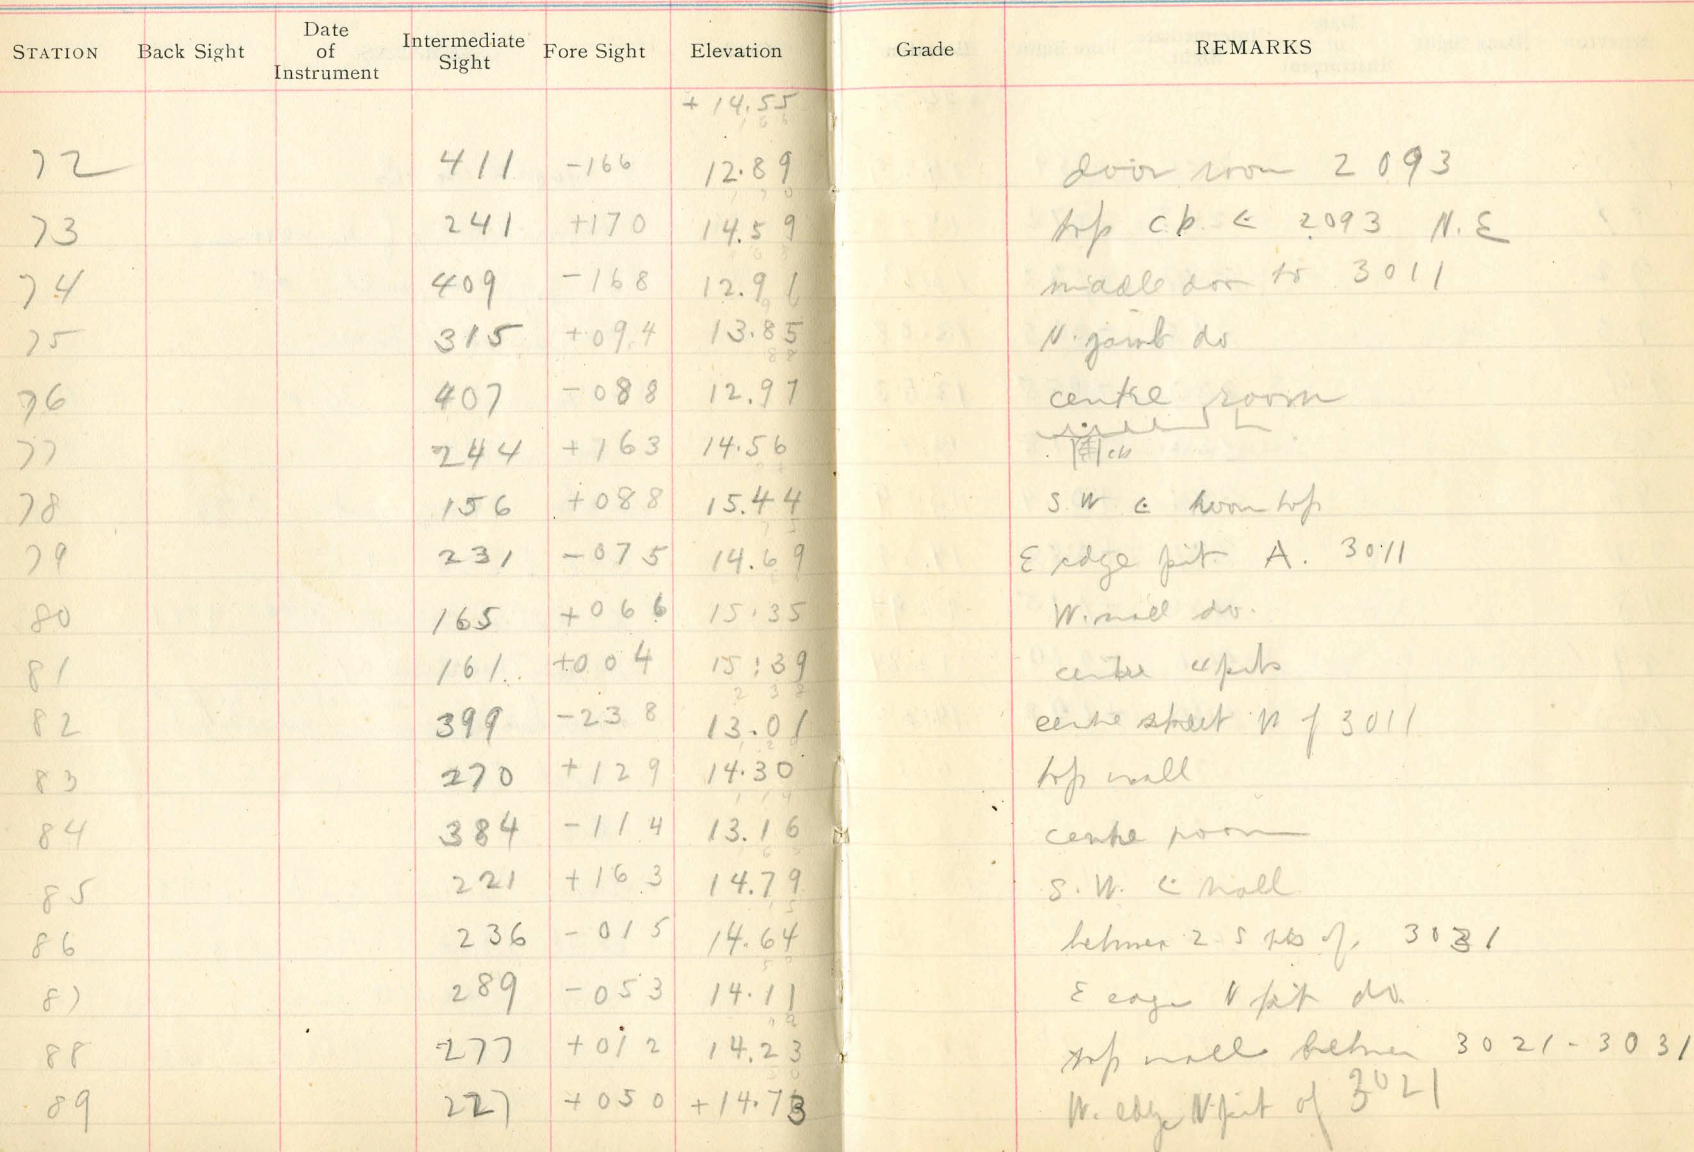 STATION Back Sight Date of Instrument Intermediate Sight Fore Sight Elevation Grade REMARKS
+ 14.55
72 411 -166 12.89 door room 2093
73 241 +170 14.59 top c.b. 2093 N.E
74 409 -168 12.91 middle door to 3011
75 315 +094 13.85 N. jamb do
76 407 -088 12.97 centre room
77 244 +163 14.56
78 156 +088 15.44 S.W. c room top
79 231 -075 14.69 E edge pit A. 3011
80 165 +066 15.35 W. wall do.
81 161 +004 15.39 centre 4 pits
82 399 -238 13.01 centre street N of 3011
83 270 +129 14.30 top wall
84 384 -114 13.16 centre room
85 221 +163 14.79 S.W. c wall
86 236 -015 14.64 between 2 S pits of 3031
87 289 -053 14.11 E edge N pit do.
88 277 +012 14.23 top wall between 3021-3031
89 227 +050 +14.73 W. edge N. pit of 3021